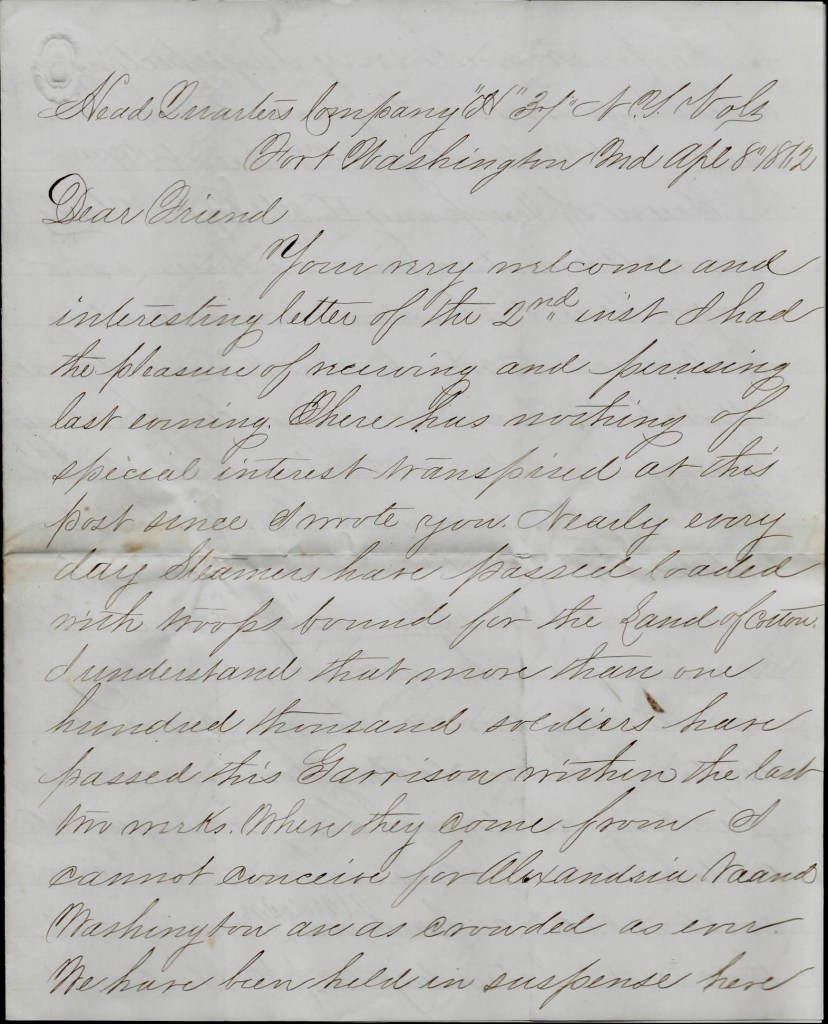 Head Quarters Company "H" 37" N. Y. Vols
Fort Washington Md Apl 8" 1862
Dear Friend
Your very welcome and
interesting letter of the 2nd inst I had
the pleasure of receiving and perusing
last evening. There has nothing of
special interest transpired at this
post since I wrote you. Nearly every
day Steamers have passed loaded
with troops bound for the Land of Cotton.
I understand that more than one
hundred thousand soldiers have
passed this Garrison within the last
two weeks. Where they come from I
cannot conceive for Alexandria Va and
Washington are as crowded as ever.
We have been held in suspense here